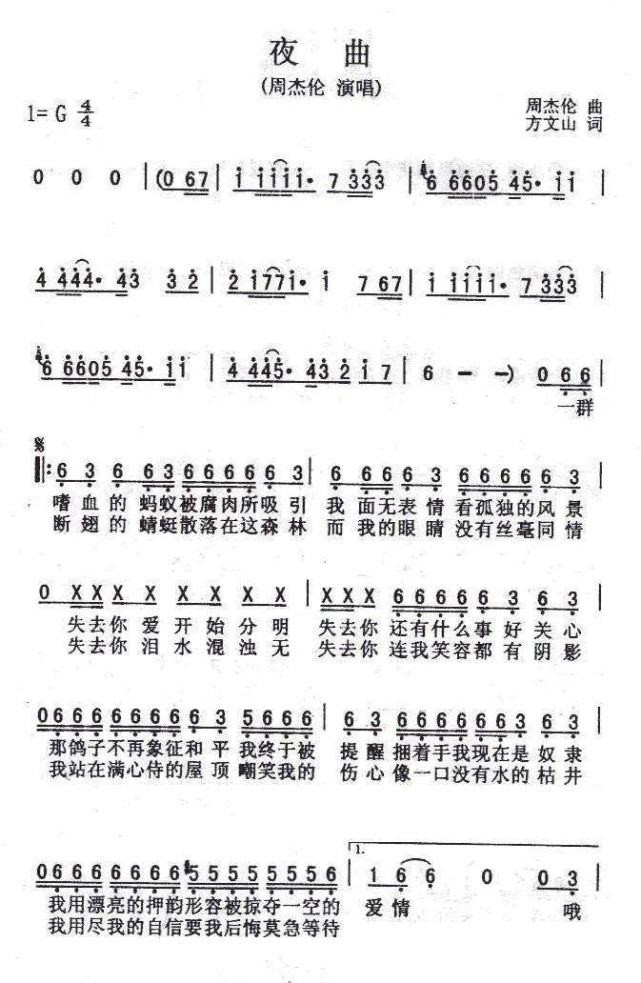 夜 曲
(周杰伦 演唱)
1= G 4/4
周杰伦 曲
方文山 词
0 0 0 | (0 67 | i iiii· 7 333 | 6 6605 45· ii |
4 444· 43 3 2 | 2 i77i· i 7 67 | i iiii· 7 333 |
6 6605 45· ii | 4 445· 43 2 i 7 | 6 - -) 0 66 |
一群
6 3 6 63 6666 6 3 | 6 66 6 3 6666 6 3 |
嗜血的 蚂蚁被腐肉所吸引 我 面无表 情 看孤独的风 景
断翅的 蜻蜓散落在这森林 而 我的眼 睛 没有丝毫同 情
0 XX XX X X X X | XXX 6666 6 3 6 3 |
失去你 爱 开 始 分 明 失去你 还有什么事 好 关 心
失去你 泪 水 混 浊 无 失去你 连我笑容都 有 阴 影
0666 6666 6 3 5666 | 6 3 6666 6666 6 3 |
那鸽子不再象征和 平 我终于被 提 醒 捆着手我现在是 奴 隶
我站在满心侍的屋 顶 嘲笑我的 伤 心 像一口没有水的 枯 井
0666 6666 5555 5556 | 1. 1 6 6 0 0 3 |
我用漂亮的押韵形容被掠夺一空的 爱 情 哦
我用尽我的自信要我后悔莫急等待